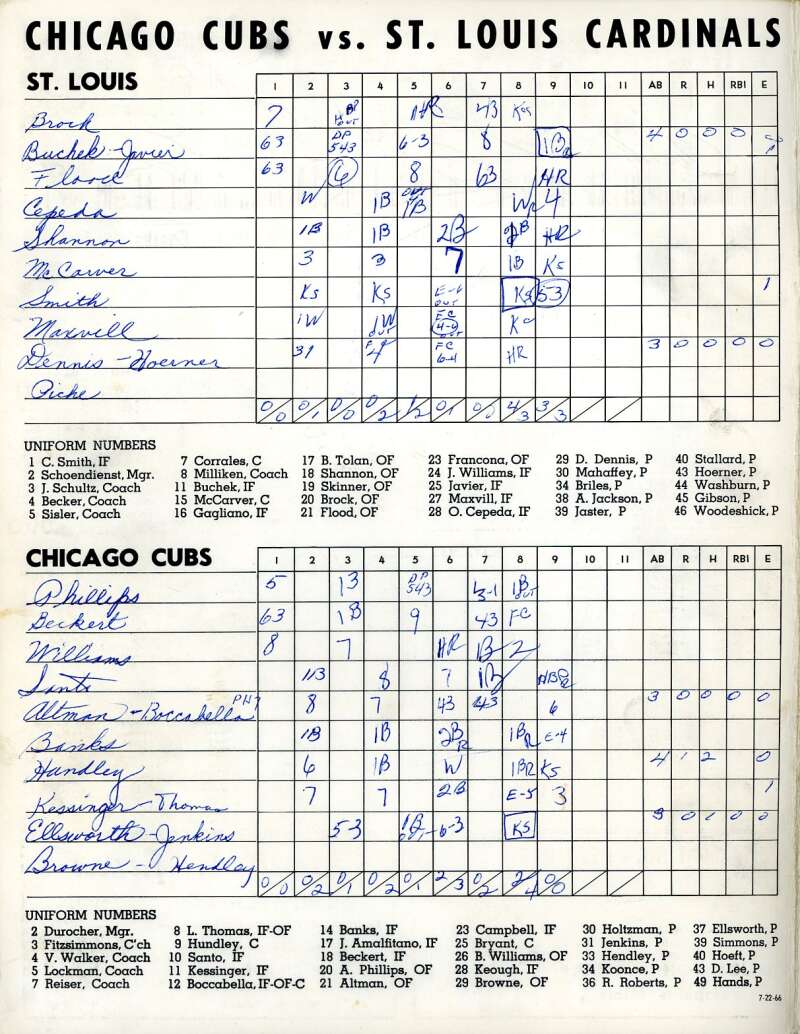 CHICAGO CUBS vs. ST. LOUIS CARDINALS
ST. LOUIS 1 2 3 4 5 6 7 8 9 10 11 AB R H RBI E
Brock 7 HBP OUT HR 43 Kc
Buchek-Javier 63 DP 543 6-3 8 1B 4 0 0 0
Flood 63 6 8 63 HR
Cepeda W 1B OUT 1B W 4
Shannon 1B 1B 2B 2B HR
McCarver 3 3 7 1B Ks
Smith Ks Ks E-6 OUT Ks 53 1
Maxvill IW IW OUT FC 4-6 OUT Kc
Dennis-Hoerner 31 F4 FC 6-4 HR 3 0 0 0 0
Piche
0/0 0/1 0/0 0/2 1/2 0/1 0/0 4/3 3/3
UNIFORM NUMBERS
1 C. Smith, IF 7 Corrales, C 17 B. Tolan, OF 23 Francona, OF 29 D. Dennis, P 40 Stallard, P
2 Schoendienst, Mgr. 8 Milliken, Coach 18 Shannon, OF 24 J. Williams, IF 30 Mahaffey, P 43 Hoerner, P
3 J. Schultz, Coach 11 Buchek, IF 19 Skinner, OF 25 Javier, IF 34 Briles, P 44 Washburn, P
4 Becker, Coach 15 McCarver, C 20 Brock, OF 27 Maxvill, IF 38 A. Jackson, P 45 Gibson, P
5 Sisler, Coach 16 Gagliano, IF 21 Flood, OF 28 O. Cepeda, IF 39 Jaster, P 46 Woodeshick, P
CHICAGO CUBS 1 2 3 4 5 6 7 8 9 10 11 AB R H RBI E
Phillips 5 13 DP 543 3-1 1B OUT
Beckert 63 1B 9 43 FC
Williams 8 7 HR 1B 2
Santo 8 7 1B HBP
Altman-Boccabella PH7 8 7 43 43 6 3 0 0 0 0
Banks 1B 1B 2B R 1B R E-4
Hundley 6 1B W 1BR Ks 4 1 2 0
Kessinger-Thomas 7 7 2B E-5 3 1
Ellsworth-Jenkins 53 1B 6-3 KS 3 0 1 0 0
Browne-Hendley
0/0 0/2 0/1 0/2 0/1 2/3 0/2 2/4 0/0
UNIFORM NUMBERS
2 Durocher, Mgr. 8 L. Thomas, IF-OF 14 Banks, IF 23 Campbell, IF 30 Holtzman, P 37 Ellsworth, P
3 Fitzsimmons, C'ch 9 Hundley, C 17 J. Amalfitano, IF 25 Bryant, C 31 Jenkins, P 39 Simmons, P
4 V. Walker, Coach 10 Santo, IF 18 Beckert, IF 26 B. Williams, OF 33 Hendley, P 40 Hoeft, P
5 Lockman, Coach 11 Kessinger, IF 20 A. Phillips, OF 28 Keough, IF 34 Koonce, P 43 D. Lee, P
7 Reiser, Coach 12 Boccabella, IF-OF-C 21 Altman, OF 29 Browne, OF 36 R. Roberts, P 49 Hands, P
7-22-66